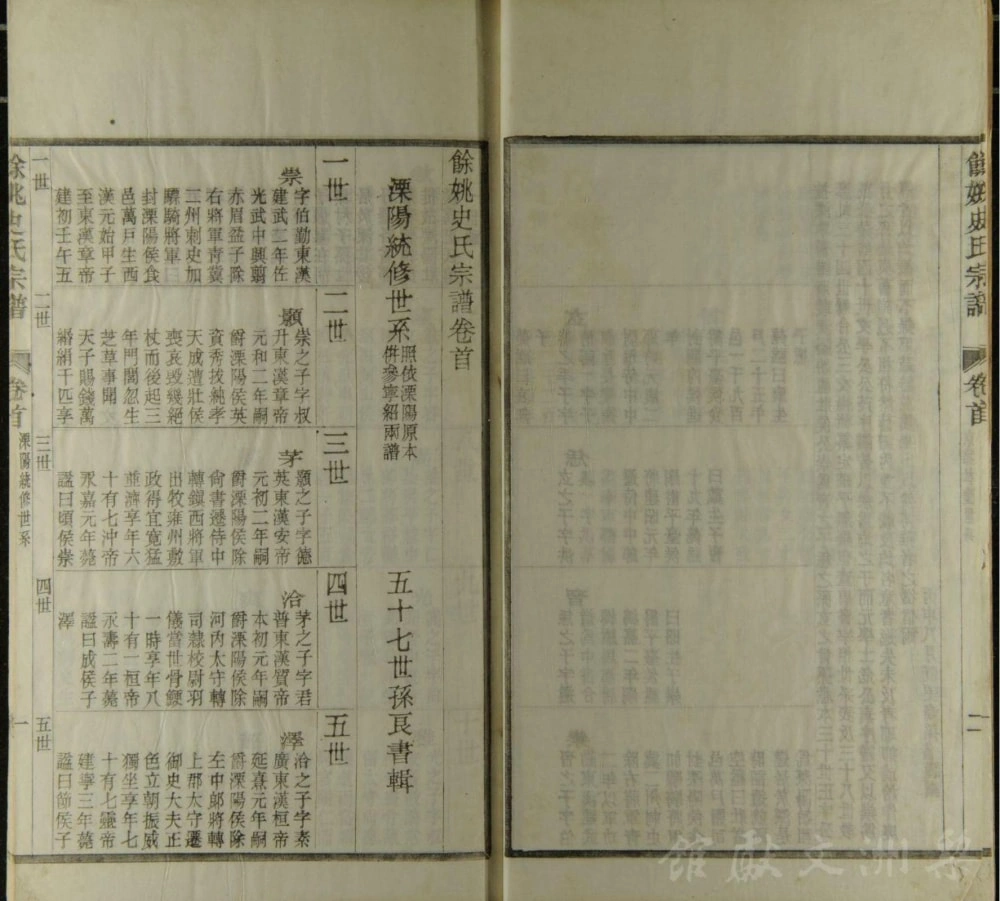 餘姚史氏宗譜
卷首
二
餘姚史氏宗譜卷首
溧陽統修世系
照依溧陽原本
併參寧紹兩譜
五十七世孫良書輯
一世
崇
字伯勤東漢
建武二年佐
光武中興翦
赤眉益子除
右將軍青冀
二州刺史加
驃騎將軍
封溧陽侯食
邑萬戶生西
漢元始甲子
至東漢章帝
建初壬午五
二世
顥
崇之子字叔
升東漢章帝
元和二年嗣
爵溧陽侯英
資秀拔純孝
天成遭壯侯
喪哀毀幾絕
杖而後起三
年門閭忽生
芝草事聞
天子賜錢萬
緡絹千匹享
三世
茅
顥之子字德
英東漢安帝
元初二年嗣
爵溧陽侯除
尙書遷侍中
轉鎭西將軍
出牧雍州敷
政得宜寛猛
並濟享年六
十有七冲帝
永嘉元年薨
諡曰頃侯崇
四世
洽
茅之子字君
普東漢質帝
本初元年嗣
爵溧陽侯除
河內太守轉
司隷校尉羽
儀當世骨鯁
一時享年八
十有一桓帝
永壽二年薨
諡曰成侯子
澤
五世
澤
洽之子字素
廣東漢桓帝
延熹元年嗣
爵溧陽侯除
左中郞將轉
上郡太守遷
御史大夫正
色立朝振威
獨坐享年七
十有七靈帝
建寧三年薨
諡曰節侯子
一世
二世
三世
四世
五世
餘姚史氏宗譜
卷首
溧陽統修世系
一
梨洲文獻館